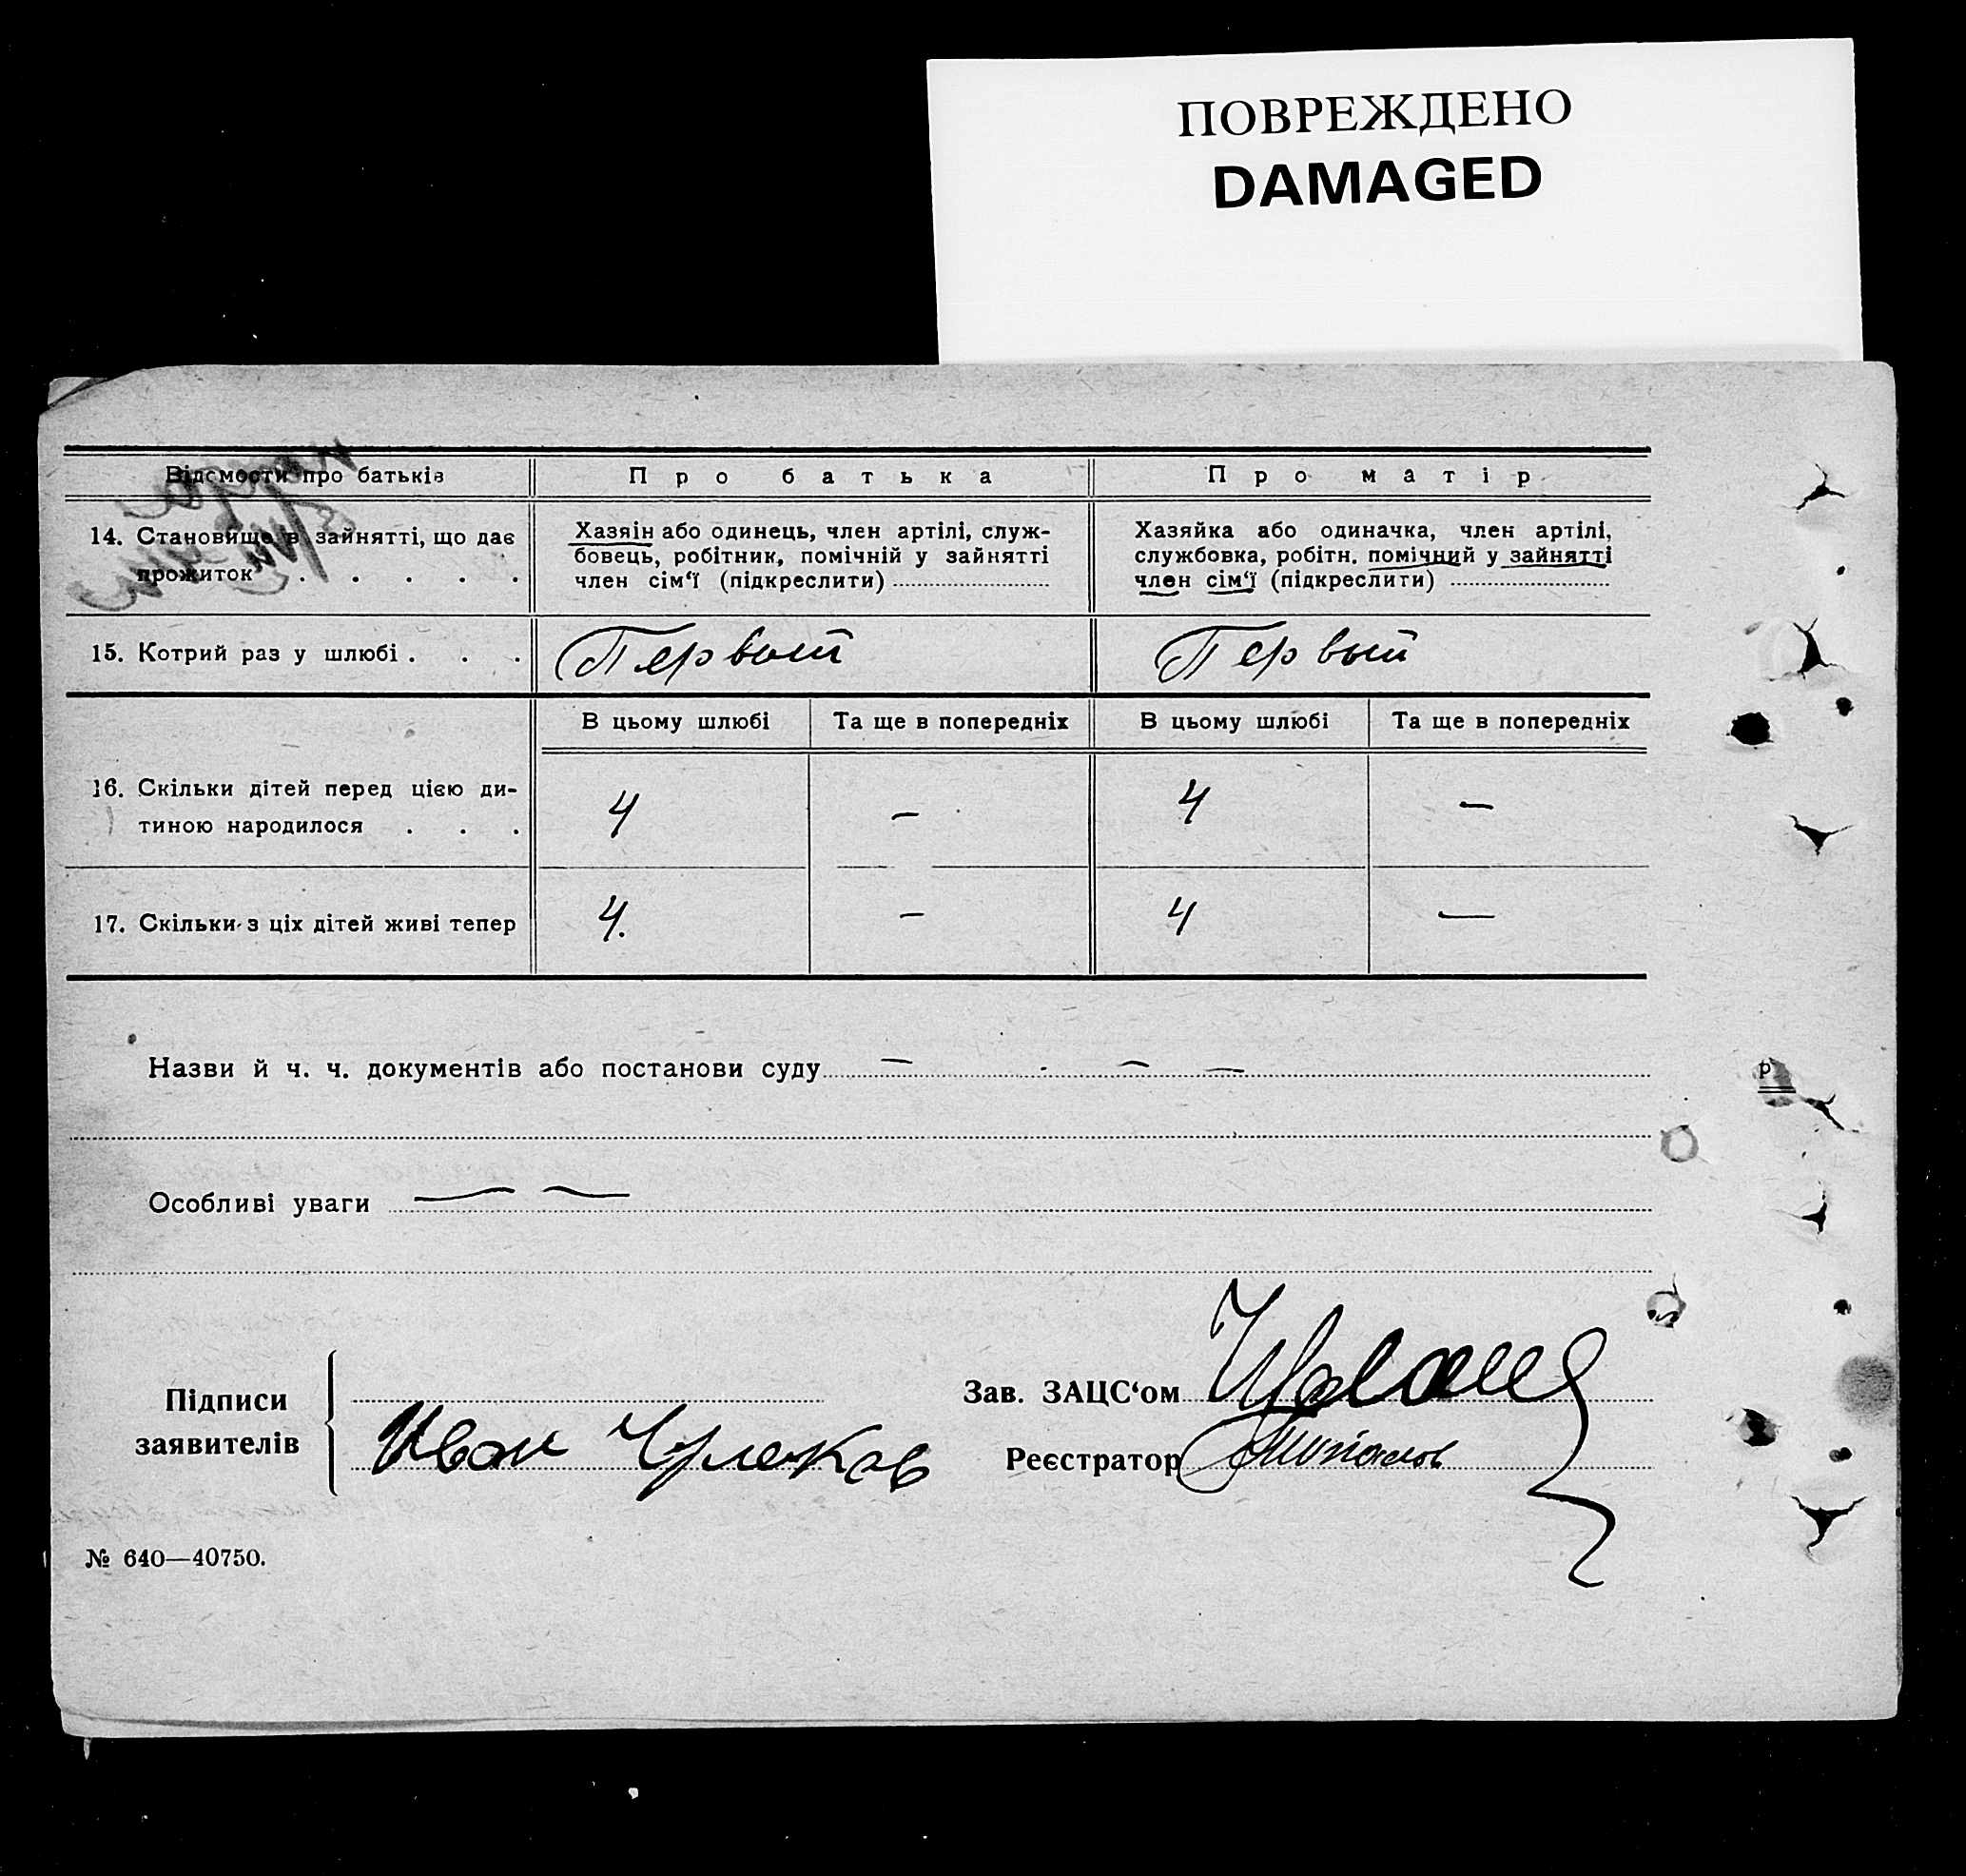 ПОВРЕЖДЕНО
DAMAGED
Відомости про батьків
Про батька
Про матір
14. Становище в зайнятті, що дає
прожиток . . . . .
Хазяін або одинець, член артілі, служ-
бовець, робітник, помічній у зайнятті
член сім'ї (підкреслити)
Хазяйка або одиначка, член артілі,
службовка, робітн. помічний у зайнятті
член сім'ї (підкреслити)
15. Котрий раз у шлюбі . . .
Первый
Первый
В цьому шлюбі
Та ще в попередніх
В цьому шлюбі
Та ще в попередніх
16. Скільки дітей перед цією ди-
тиною народилося . . .
4
—
4
—
17. Скільки з ціх дітей живі тепер
4.
—
4
—
Назви й ч. ч. документів або постанови суду — — —
р
Особливі уваги — —
Підписи
заявителів
Иван
Зав. ЗАЦС'ом
Реєстратор
№ 640—40750.